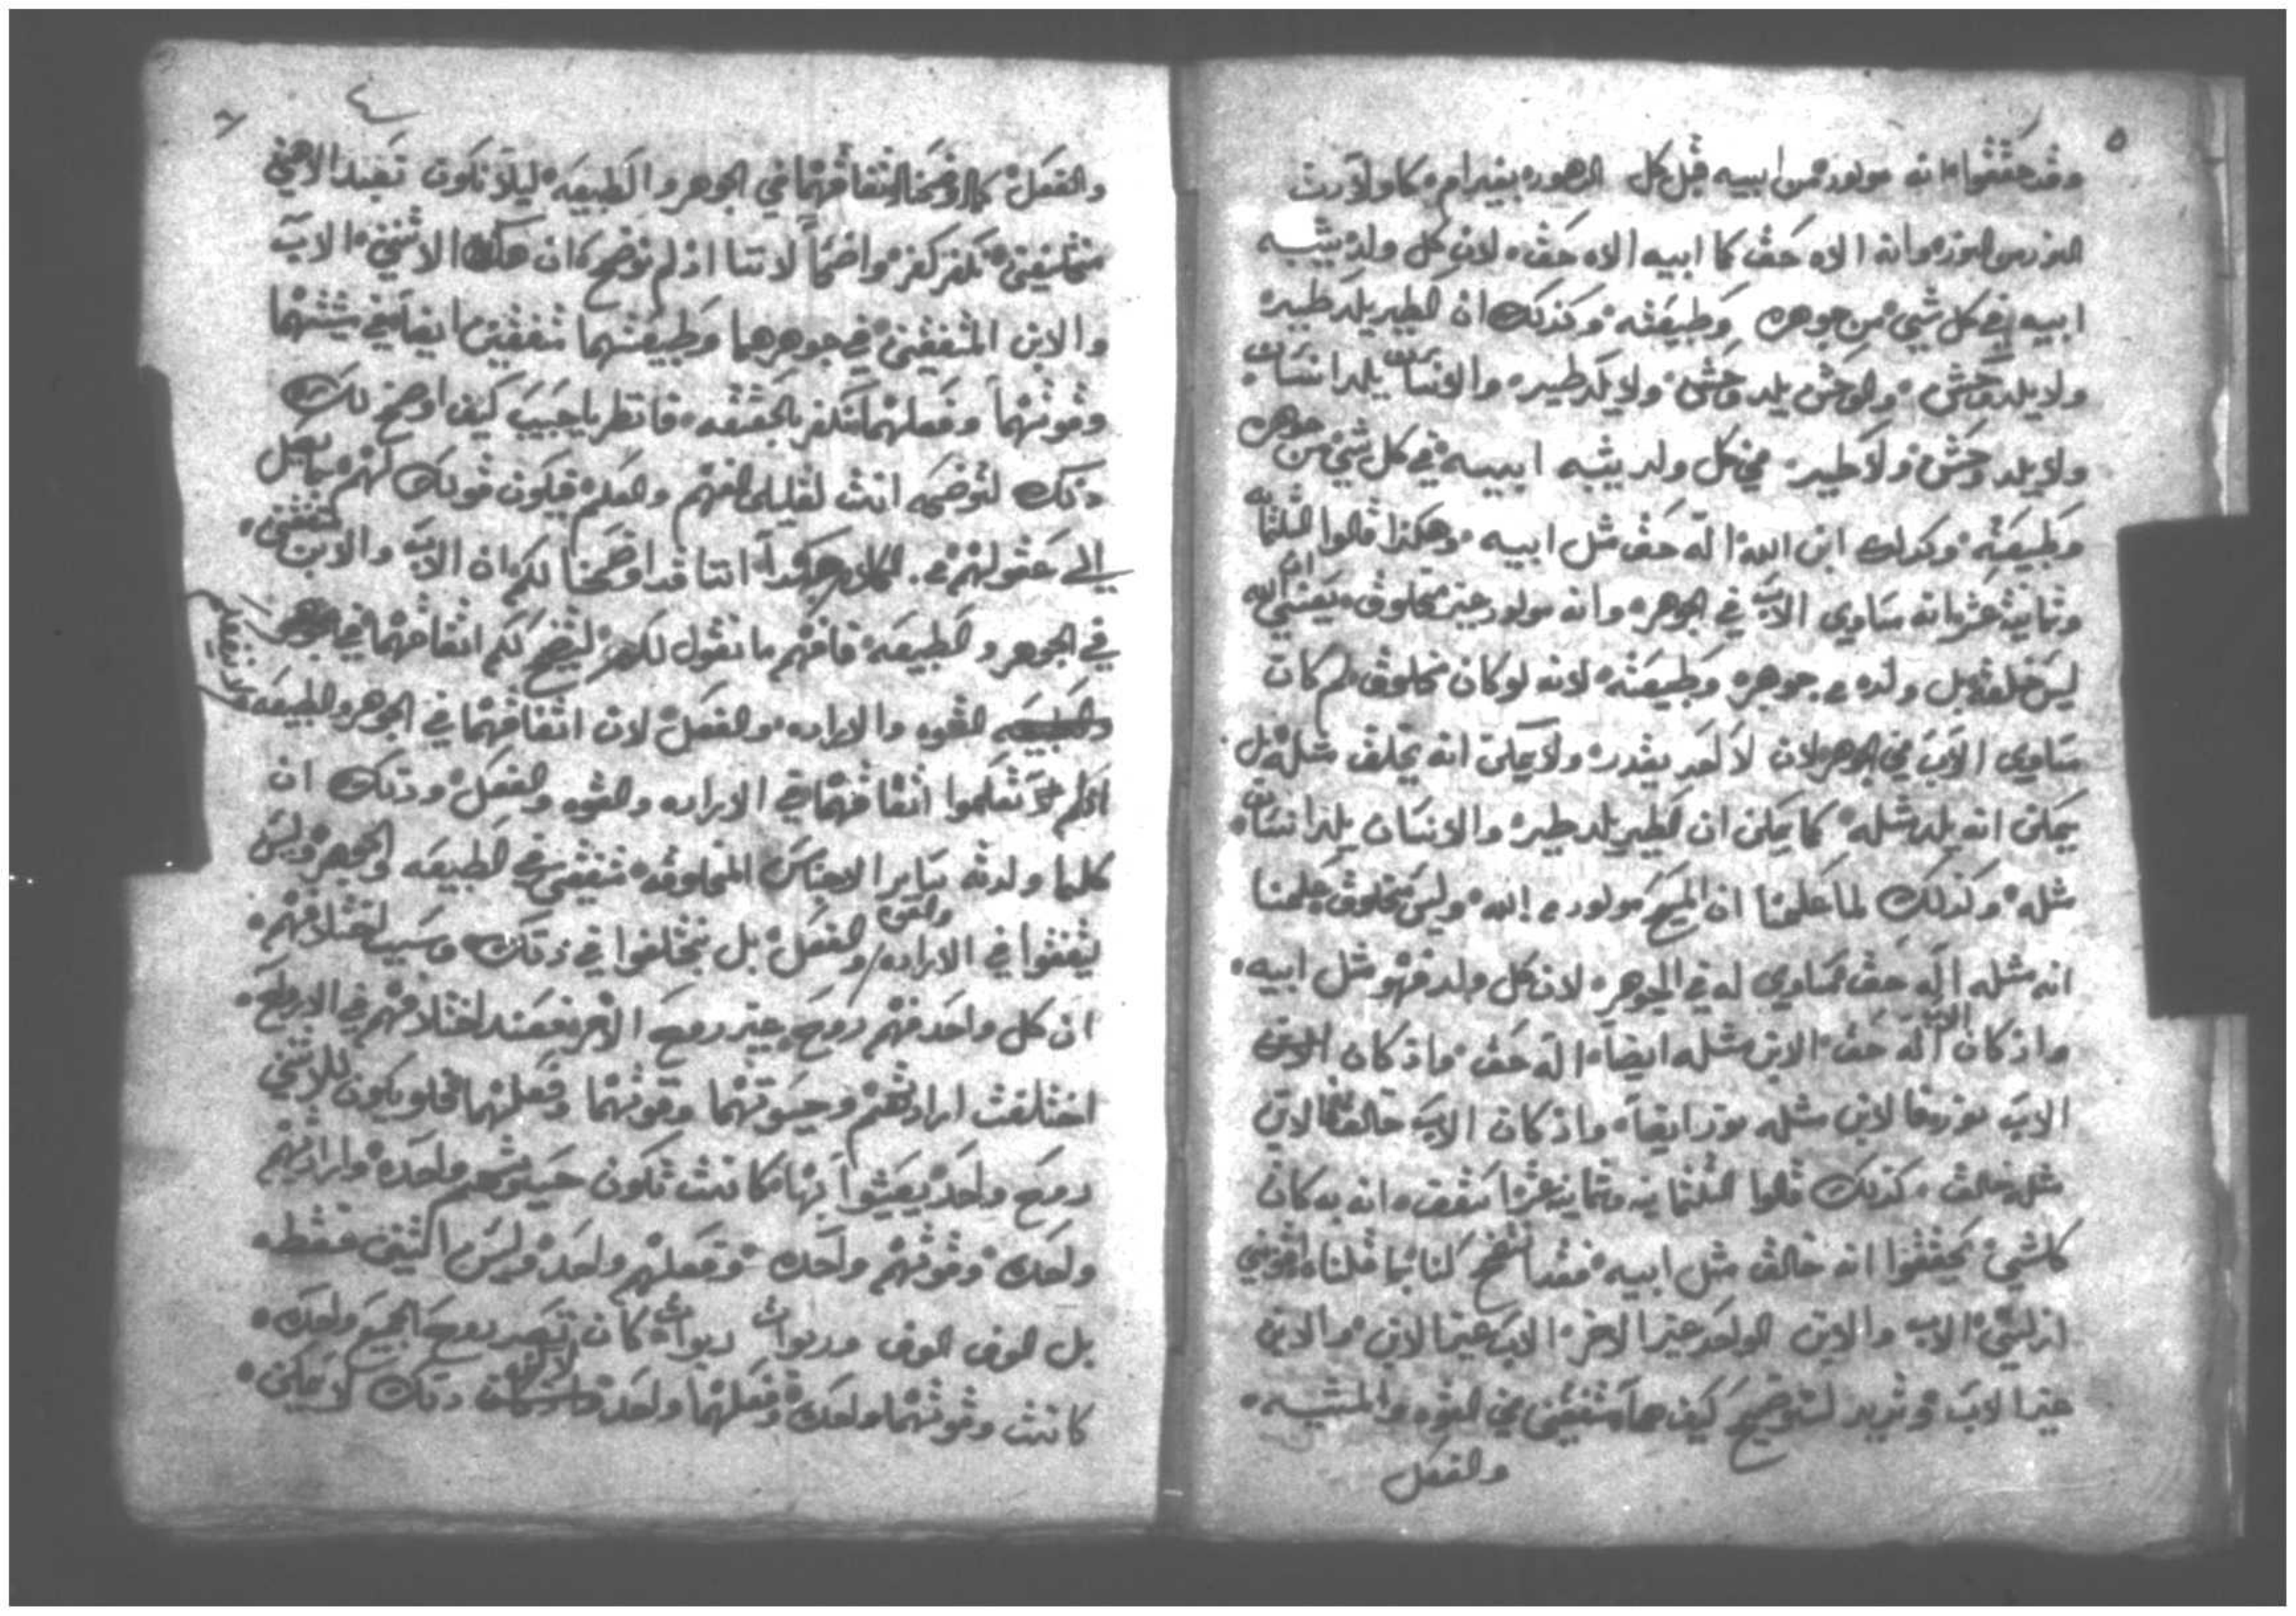 ٥
وقد حققوا انه مولود من ابيه قبل كل الدهور بغير ام كما ولادت
النور من النور وانه الاه حق كما ابيه الاه حق لان كل ولد يشبه
ابيه في كل شي من جوهره وطبيعته وكذلك ان الطير يلد طير
ولا يلد وحش والوحش يلد وحش ولا يلد طير والانسان يلد انسان
ولا يلد وحش ولا طير في كل ولد يشبه ابيه في كل شي من جوهره
وطبيعته وكدلك ابن الله اله حق مثل ابيه وهكذا قالوا الثلثمايه
وثمانيه عشر انه مساوي الاب في الجوهر وانه مولود غير مخلوق يعني ان الله
ليس خلقه بل ولده من جوهره وطبيعته لانه لو كان مخلوق لم كان
مساوي الاب في الجوهر لان لا احد يقدر ولا يمكن انه يخلق مثله بل
يمكن انه يلد مثله كما يمكن ان الطير يلد طير والانسان يلد انسان
مثله وكذلك لما علمنا ان المسيح مولود من الله وليس مخلوق علمنا
انه مثله اله حق مساوي له في الجوهر لان كل ولد فهو مثل ابيه
واذ كان الاب اله حق الابن مثله ايضا اله حق واذ كان
الاب نور فالابن مثله نور ايضا واذ كان الاب خالق الابن
مثله خالق كذلك قالوا الثلثمايه وثمانيه عشر اسقف انه به كان
كلشي يحققوا انه خالق مثل ابيه فقد اتضح لنا بما قلناه اقنومين
ازليين الاب والابن الواحد غير الاخر الاب غير الابن والابن
غير الاب ونريد لنوضح كيف هما متفقين في القوه والمشيه
والفعل
٤
٦
والفعل كما اوضحنا اتفاقهما في الجوهر والطبيعه ليلا نكون نعبد الاهين
نكفر كفر واضحا لاننا اذ لم نوضح ان هدا الاثنين الاب
والابن المتفقين في جوهرهما وطبيعتهما متفقين ايضا في مشيتهما
وقوتهما وفعلهما نكفر بالحقيقه فانظر يا حبيب كيف اوضح لك
ذلك لتوضحه انت لقليلي الفهم والعلم فيكون قولك لهم
الي عقولهم الكلام هكدا اننا قد اوضحنا لكم ان الاب والابن متفقين
في الجوهر والطبيعه فافهم ما نقول لكم ليتضح لكم اتفاقهما في
القوه والاراده والفعل لان اتفاقهما في الجوهر والطبيعه
اذ لم تعلموا اتفاقهما في الاراده والقوه والفعل وذلك ان
كلما ولدته ساير الاجناس المخلوقه متفقين في الطبيعه والجوهر وليس
يتفقوا في الاراده والقوه والفعل بل يختلفوا في ذلك وسبب اختلافهم
ان كل واحد منهم روح غير روح الاخر فعند اختلافهم في الارواح
اختلفت ارادتهم وحيوتهما وقوتهما وفعلهما فلو يكون للاثنين
روح واحد يعيشوا بها كانت تكون حيوتهم واحده وارادتهم
واحده وقوتهم واحده وفعلهم واحد وليس اثنين فقط
بل الوف الوف وربوات ربوات كان تصير روح الجميع واحده
كانت وقوتهما واحده وفعلهما واحد ذلك لا يمكن